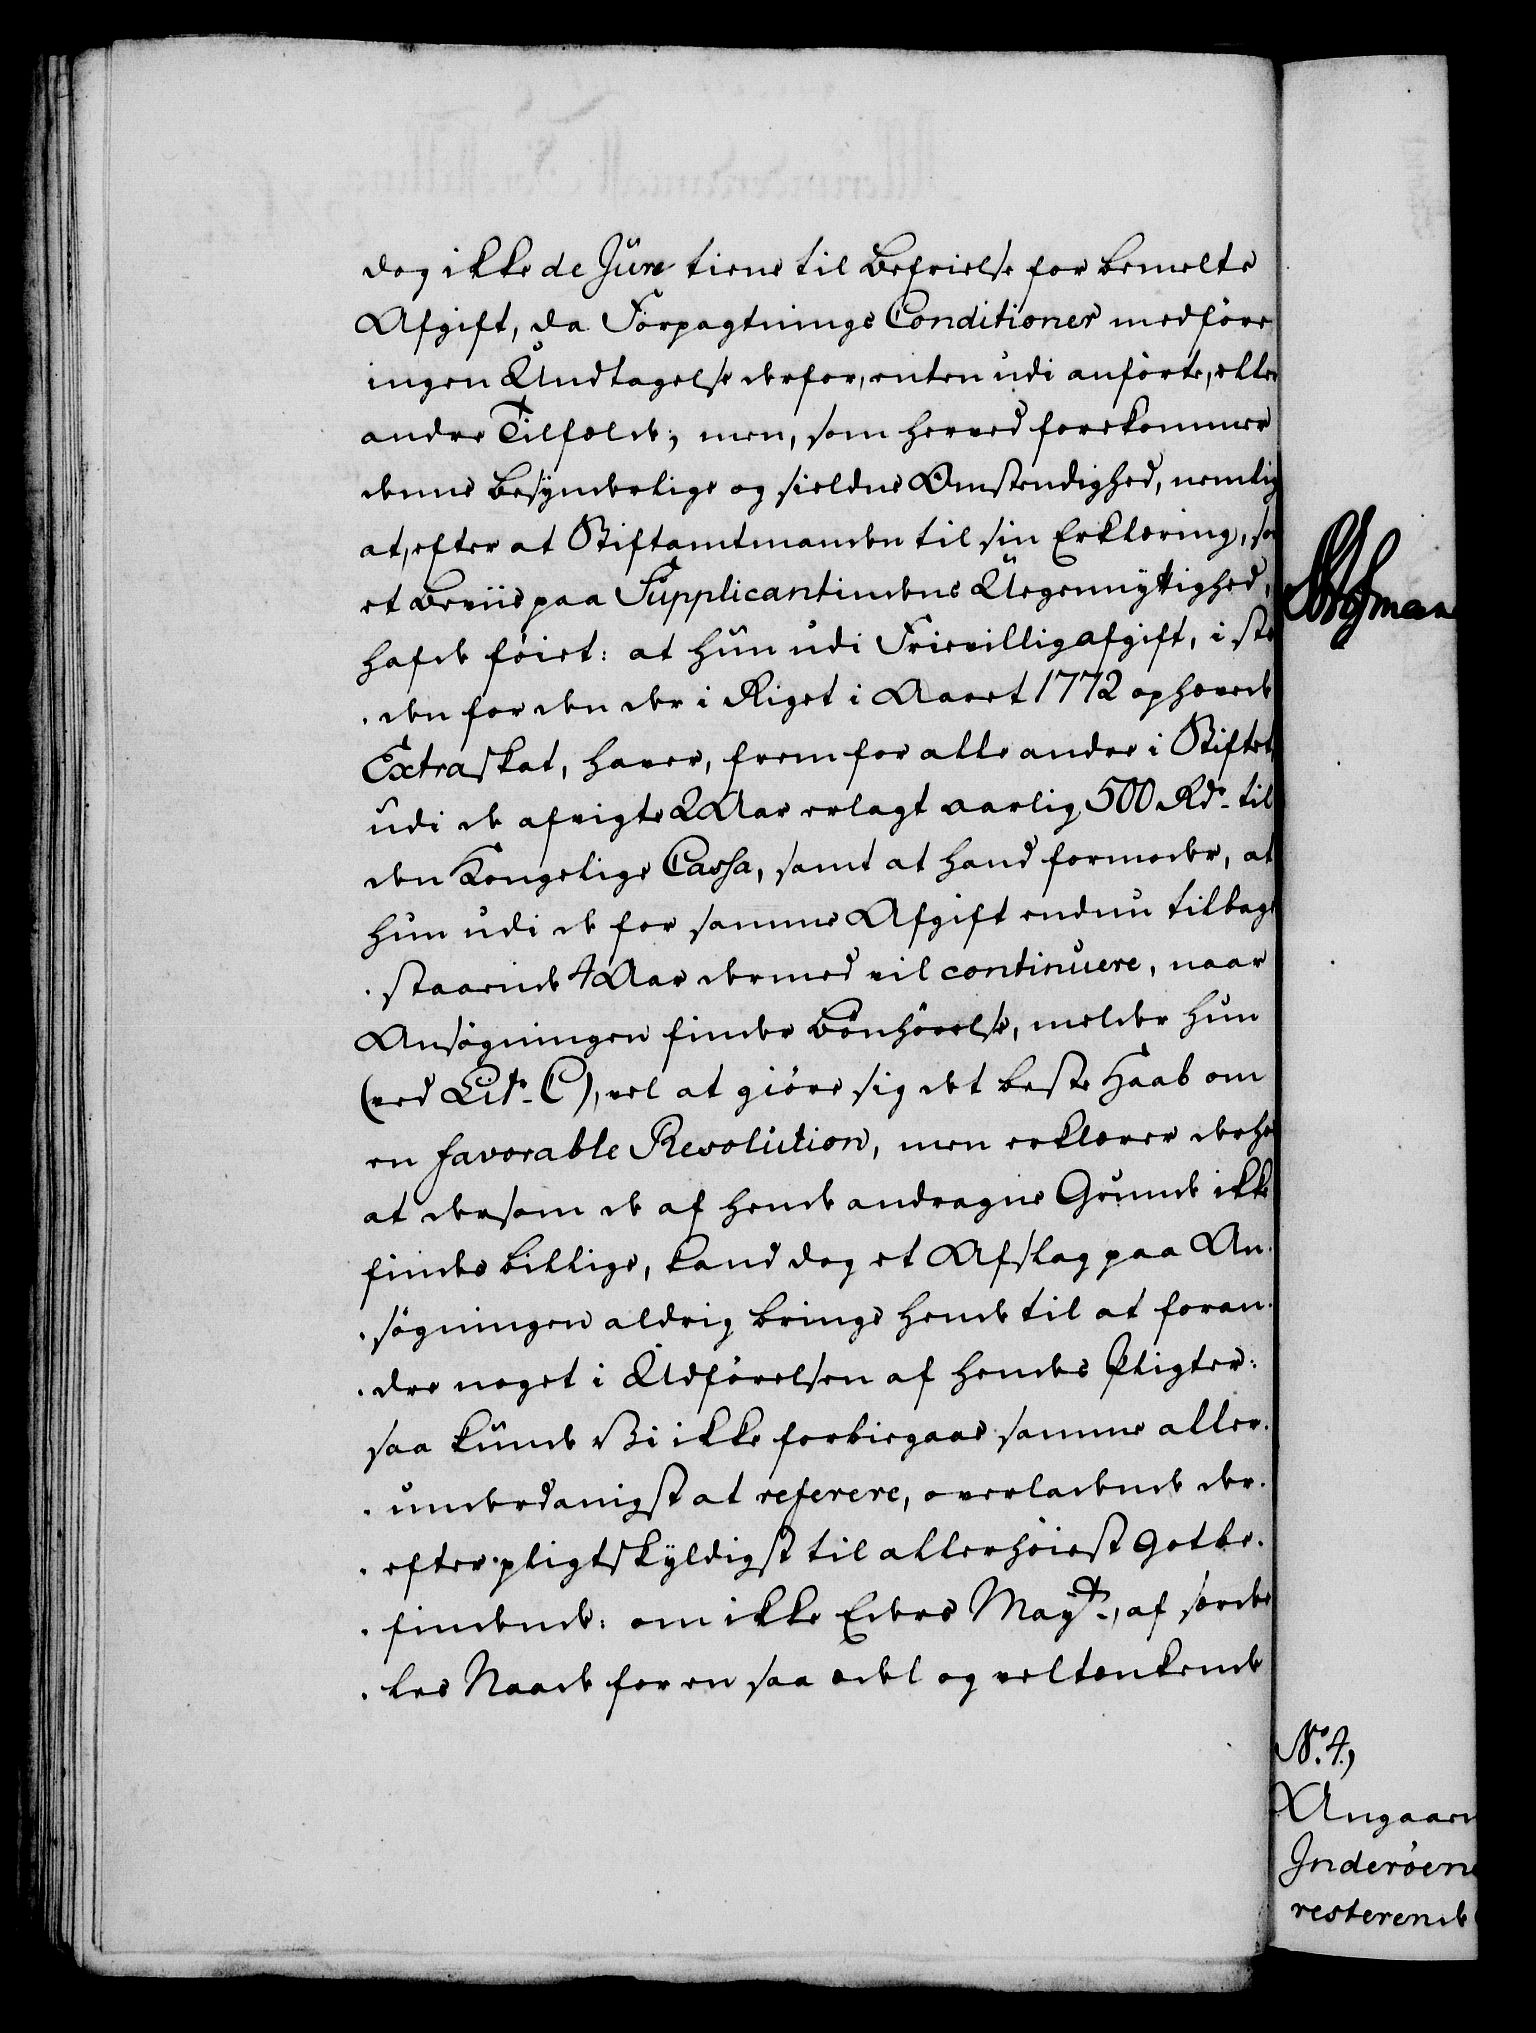 dog ikke de Jure tiene til Befrielse for bemelte
Afgift, da Forpagtnings Conditioner medföre
ingen Undtagelse derfor, enten udi anförte, eller
andre Tilfælde; men, som herved forekommer
denne besynderlige og sieldne Omstendighed, nemlig
at, efter at Stiftamtmanden til sin Erklæring, so
et Beviis paa Supplicantindens Uegennyttighed,
hafde föiet: at hun udi Frievilligafgift, i ste
den for den der i Riget i Aaret 1772 ophævede
Extraskat, haver, frem for alle andre i Stiftet
udi de afvigte 2 Aar erlagt aarlig 500 Rdr. til
den Kongelige Cassa, samt at hand formoder, at
hun udi de for samme Afgift endnu tilbage
staaende 4 Aar dermed vil continuere, naar
Ansögningen finder Bönhörelse, melder hun
(ved Litr. C), vel at giöre sig det beste Haab om
en favorable Resolution, men erklærer derhos
at dersom de af hende andragne Grunde ikke
findes billige, kand dog et Afslag paa An-
sögningen aldrig bringe hende til at foran-
dre noget i Udförelsen af hendes Pligter:
saa kunde Vi ikke forbiegaae samme aller-
underdanigst at referere, overladende der-
efter pligtskyldigst til allerhöiest Gotbe-
findende: om ikke Eders Mayt., af særde
les Naade for en saa ædel og veltænkende
No. 4,
Angaaen
Inderöens
resterende